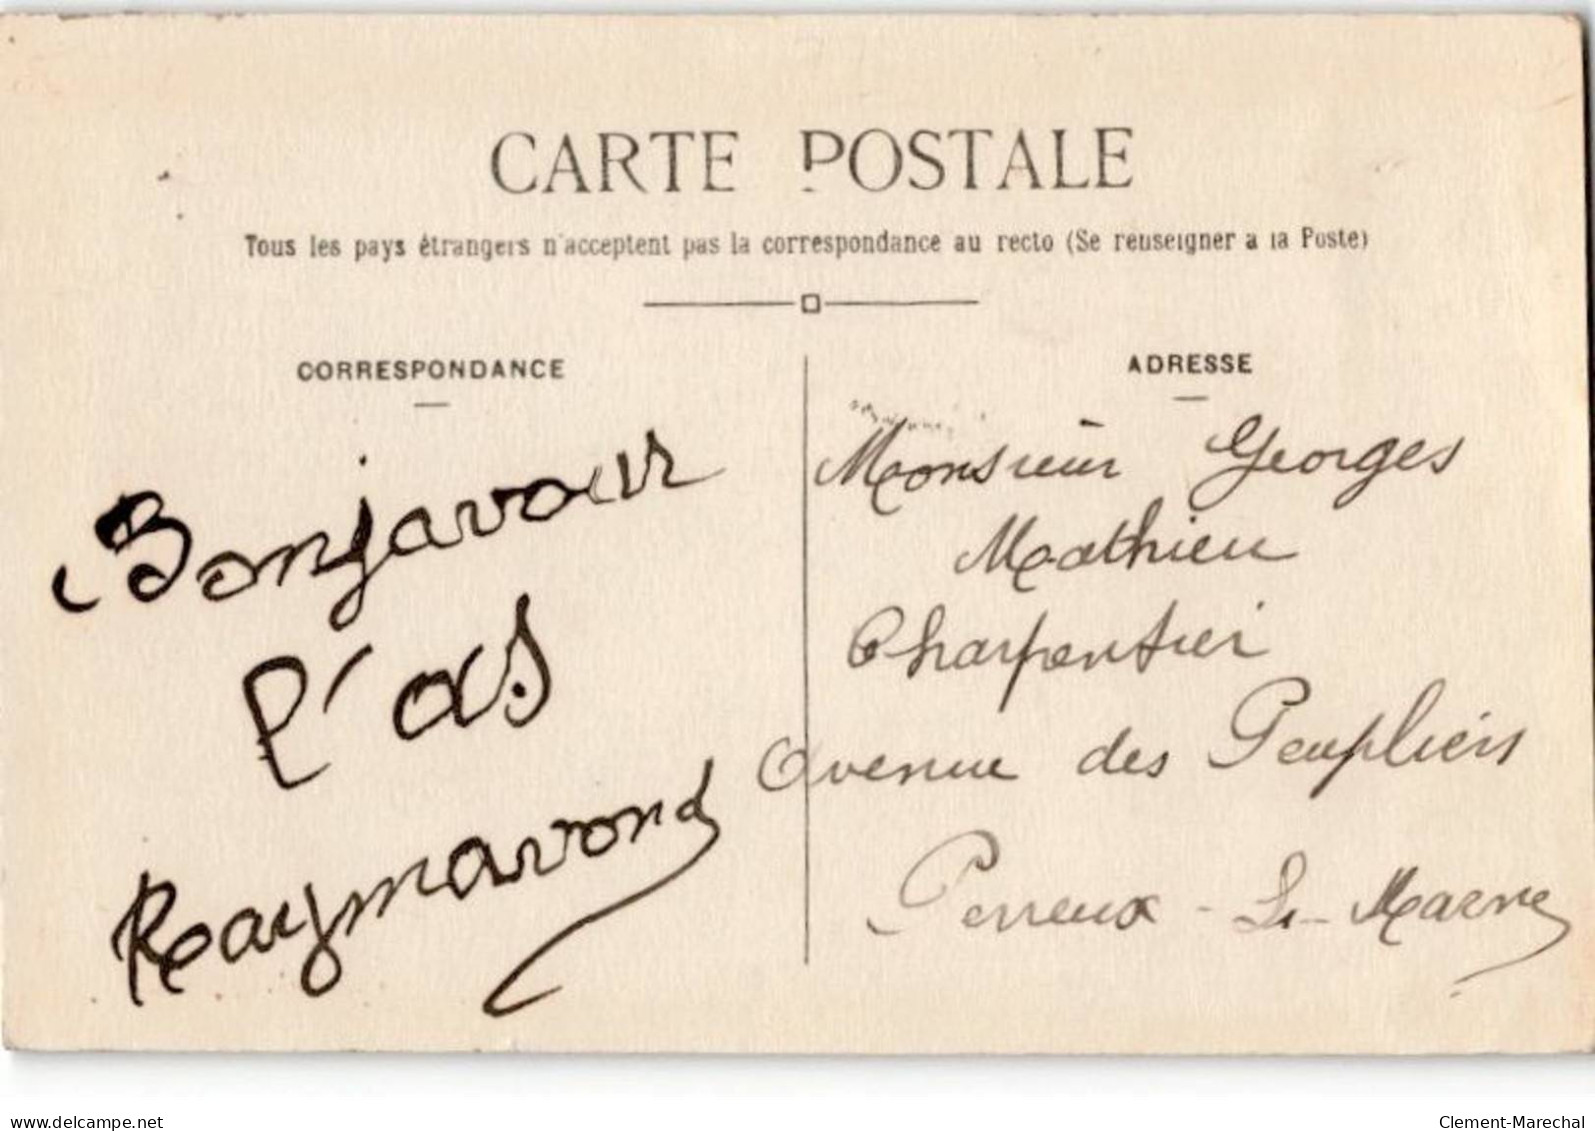 CARTE POSTALE
Tous les pays étrangers n'acceptent pas la correspondance au recto (Se renseigner a la Poste)
CORRESPONDANCE
Bonjavour
l'as
Raymavond
ADRESSE
Monsieur Georges
Mathieu
Charpentier
Avenue des Peupliers
Perreux - Sr - Marne
delcampe.net
Clement-Marechal